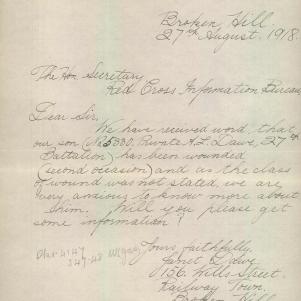 Broken Hill.
27th August. 1918.
The Hon. Secretary
Red Cross Information Bureau
Dear Sir,
We have received word, that
our son (No 5330, Private A. L. Dawe, 27th
Battalion) has been wounded
(second occasion) and as the class
of wound was not stated, we are
very anxious to know more about
him. Will you please get
some information?
Yours faithfully,
Janet E. Dawe.
156. Wills Street.
Railway Town.
Broken Hill